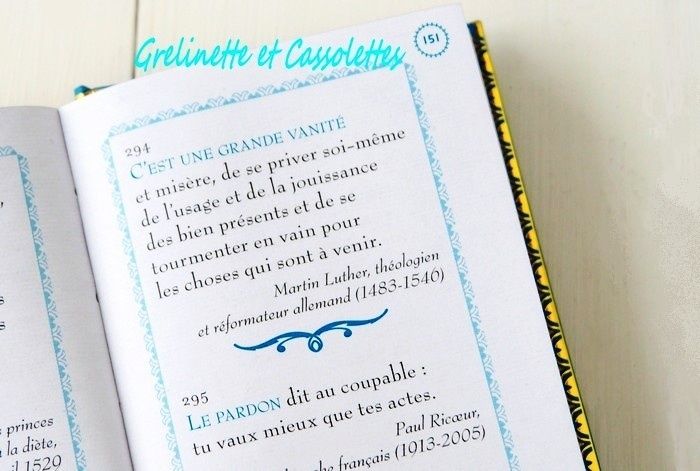 Grelinette et Cassolettes
151
294
C'EST UNE GRANDE VANITÉ
et misère, de se priver soi-même
de l'usage et de la jouissance
des bien présents et de se
tourmenter en vain pour
les choses qui sont à venir.
Martin Luther, théologien
et réformateur allemand (1483-1546)
295
LE PARDON dit au coupable :
tu vaux mieux que tes actes.
Paul Ricœur,
français (1913-2005)
princes
la diète,
1529